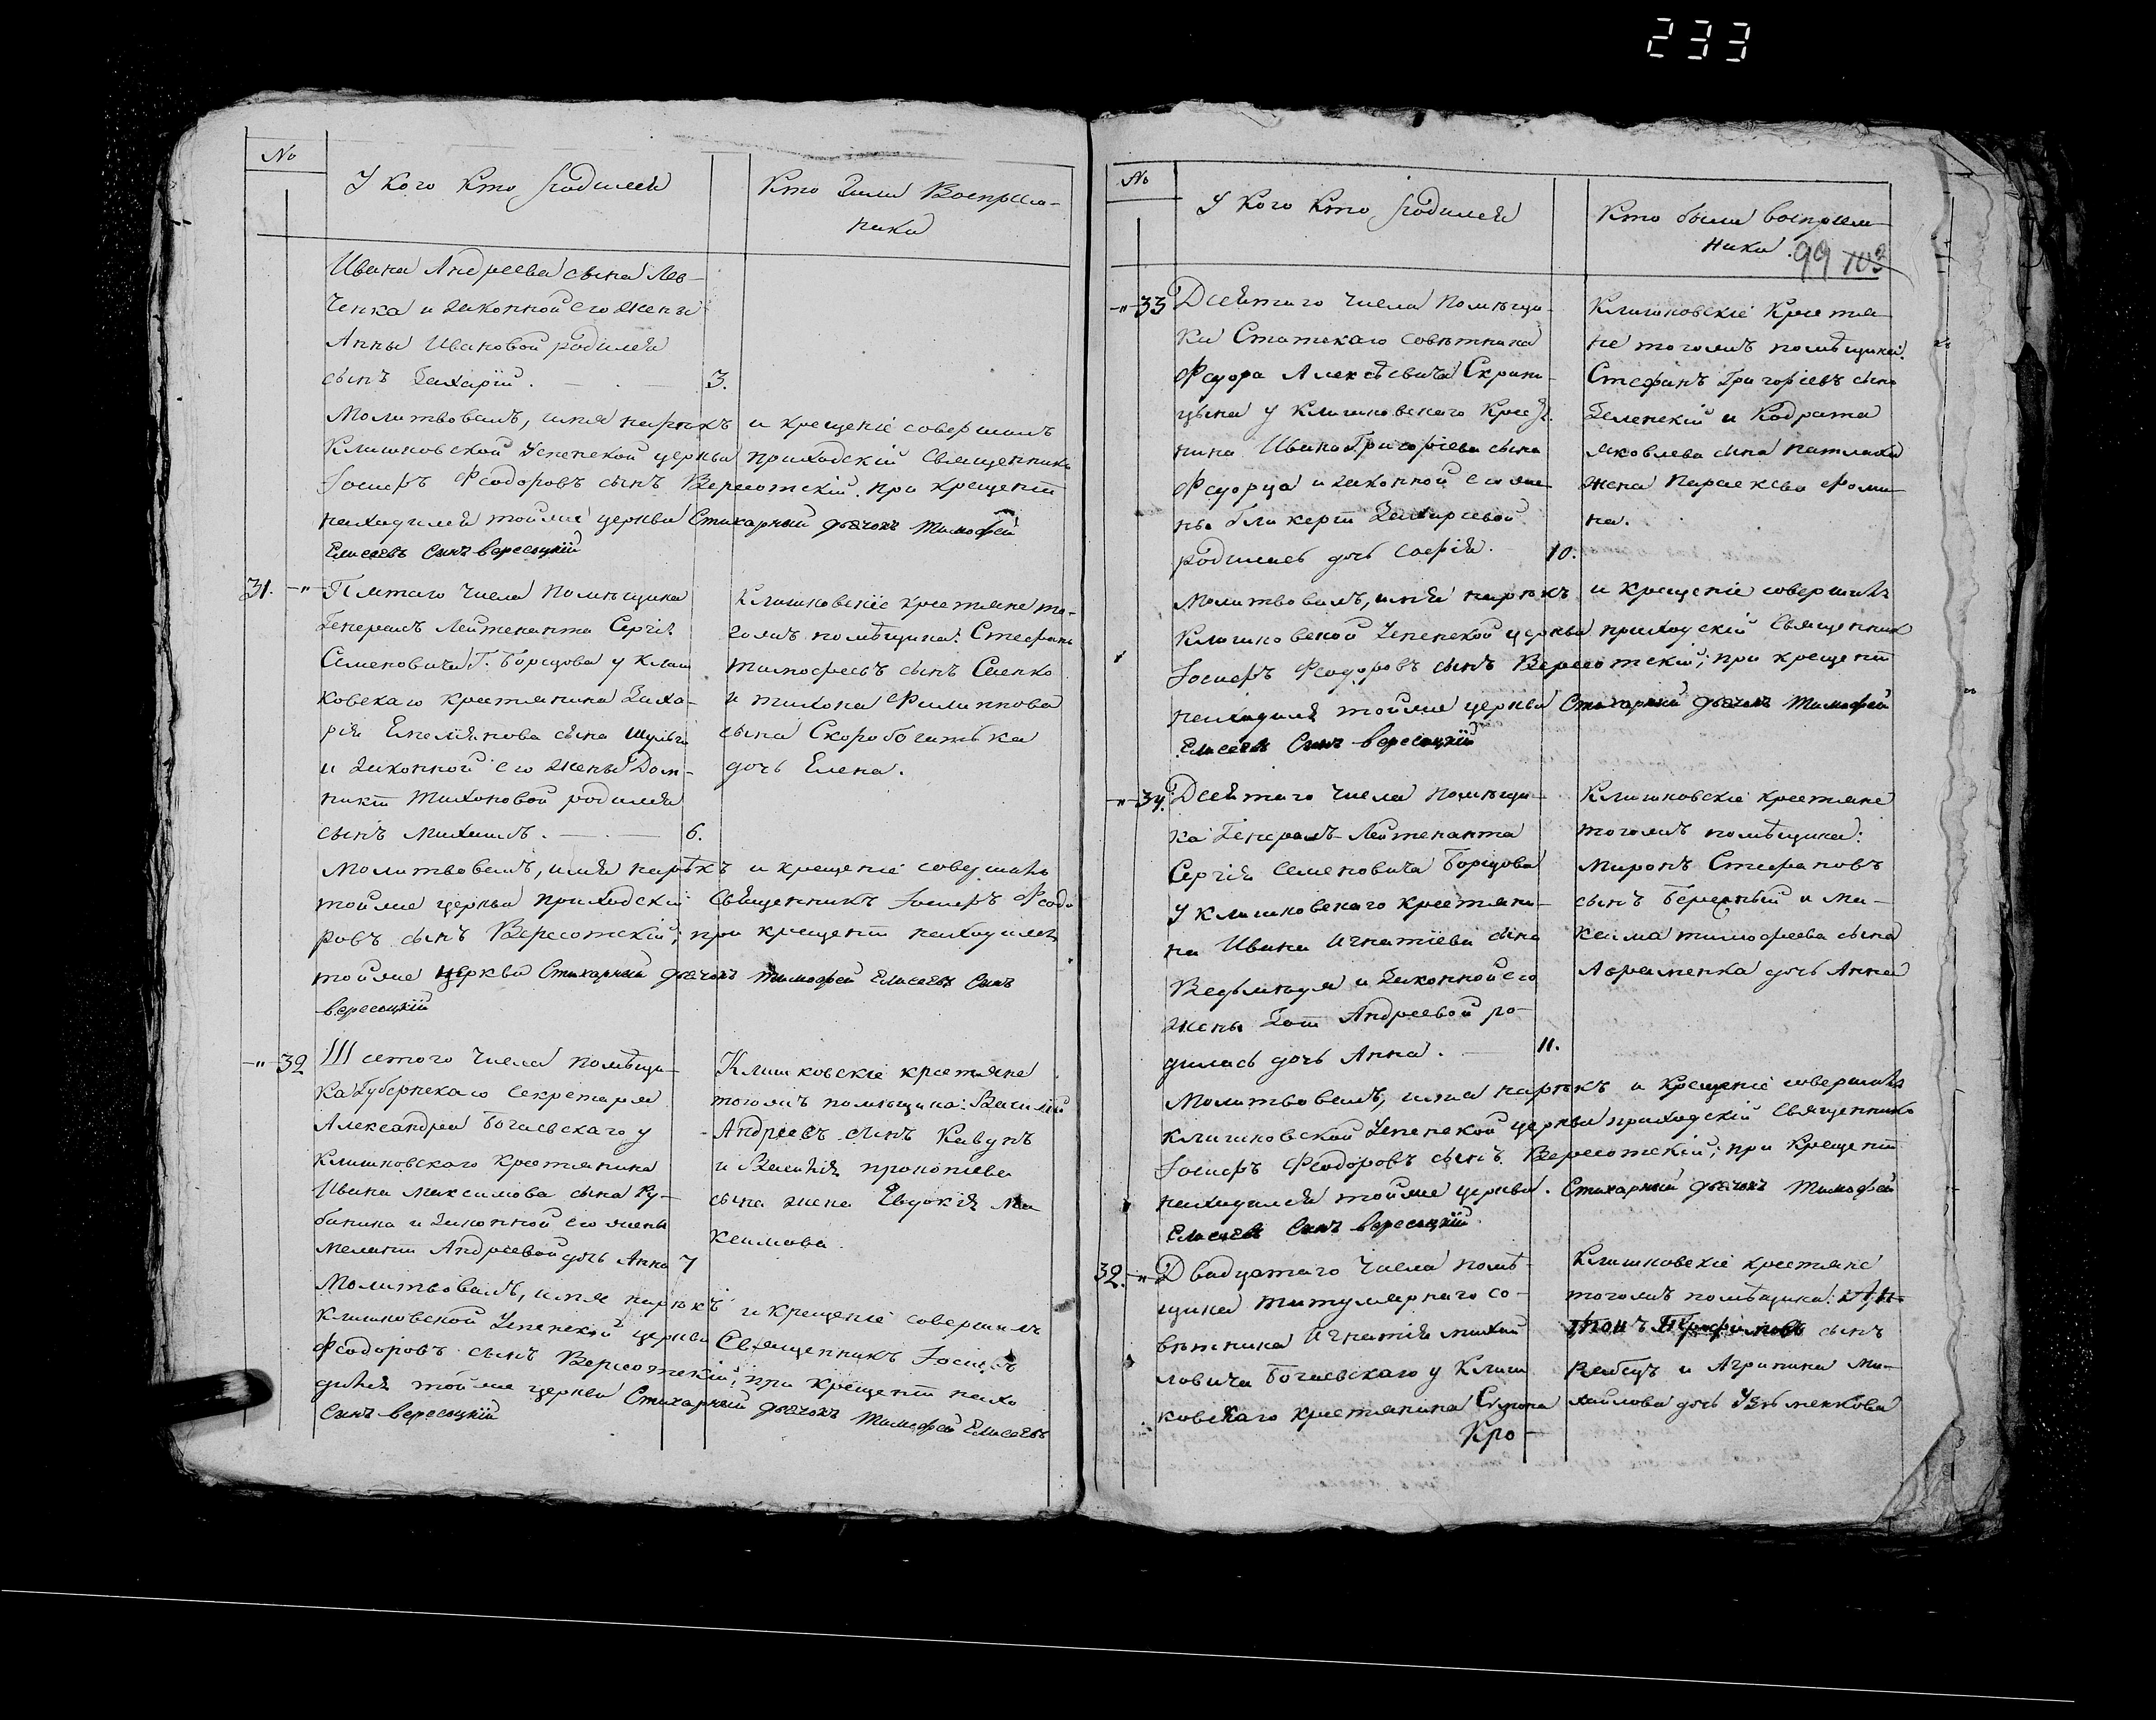 233
№
У кого Кто родился
Кто были Воспріем-
ники
Ивана Андреева сына Лев-
ченка и законной его жены
Анны Ивановой родился
сынъ Захарій. 3.
Молитвовалъ, имя нарѣкъ и крещеніе совершилъ
Клишковской Успенской церкви приходскій Священникъ
Іосифъ Ѳеодоровъ сынъ Вересотскій. при крещеніи
находился тойже церкви Стихарный дьячокъ Тимофей
Елисеевъ Сынъ Вересоцкій
31. -"- Пятаго числа помѣщика
Генералъ Лейтенанта Сергія
Семеновича Г. Борщова у Клиш
ковскаго крестянина Заха-
рія Емеліянова сына Шульги
и законной его жены Дом-
никіи Тихоновой родился
сынъ Михаилъ. 6.
Клишковскіе крестяне то-
гожъ помѣщика: Стефанъ
Тимофеевъ сынъ Сленко
и Тихона Филиппова
сына Скоробогатька
дочь Елена.
Молитвовалъ, имя нарѣкъ и крещеніе совершилъ
тойже церкви приходскій Священникъ Іосифъ Ѳеодо
ровъ сынъ Вересотскій; при крещеніи находился
тойже церкви Стихарный дьячокъ Тимофей Елисеевъ Сынъ
Вересоцкій
-"- 32 Шестого числа помѣщи-
ка Губернскаго Секретаря
Александра Богаевскаго у
Клишковскаго крестянина
Ивана Максимова сына Ку-
банина и законной его жены
Меланіи Андреевой дочь Анна 7
Клишковскіе крестяне
тогожъ помѣщика: Василій
Андреевъ сынъ Кавунъ
и Василія Прокопіева
сына жена Евдокія Ма
ксимова.
Молитвовалъ, имя нарѣкъ и крещеніе совершилъ
Клишковской Успенской церкви Священникъ Іосифъ
Ѳеодоровъ сынъ Вересотскій; при крещеніи нахо
дился тойже церкви Стихарный дьячокъ Тимофей Елисеевъ
Сынъ Вересоцкій
№
У Кого Кто родился
Кто были воспріем-
ники.
99 103
-"- 33 Десятаго числа помѣщи-
ка Статскаго совѣтника
Федора Алексѣевича Скрипи-
цына у Клишковского Крестя-
нина Ивана Григоріева сына
Федорца и законной его же-
ны Гликеріи Захаріевой
родилась дочь Софія. 10.
Клишковскіе Крестя-
не тогожъ помѣщика:
Стефанъ Григоріевъ сынъ
Зеленскій и Кодрата
Яковлева сына
жена Параскева Фоми-
на.
Молитвовалъ, имя нарѣкъ и крещеніе совершилъ
Клишковской Успенской церкви приходскій Священникъ
Іосифъ Ѳеодоровъ сынъ Вересотскій; при крещеніи
находился тойже церкви Стихарный дьячокъ Тимофей
Елисеевъ Сынъ Вересоцкій
-"- 34. Десятаго числа помѣщи-
ка Генералъ-Лейтенанта
Сергія Семеновича Борщова
у Клишковскаго крестяни-
на Ивана Игнатіева сына
Ведьмѣдя и Законной его
жены Зот Андреевой ро-
дилась дочь Анна. 11.
Клишковскіе крестяне
тогожъ помѣщика:
Миронъ Стефановъ
сынъ и Ма-
ксима Тимофеева сына
Авраменка дочь Анна
Молитвовалъ, имя нарѣкъ и Крещеніе совершилъ
Клишковской Успенской церкви приходскій Священникъ
Іосифъ Ѳеодоровъ сынъ Вересотскій; при Крещеніи
находился тойже церкви. Стихарный дьячокъ Тимофей
Елисеевъ Сынъ Вересоцкій
32. -"- Двадцатаго числа помѣ-
щика титулярнаго со-
вѣтника Игнатія Михай
ловича Богаевскаго у Клиш
ковскаго крестянина Симона
Кро-
Клишковскіе крестяне
тогожъ помѣщика: Ан-
тонъ Трофимовъ сынъ
Рябецъ и Агрипина Ми-
хайлова дочь